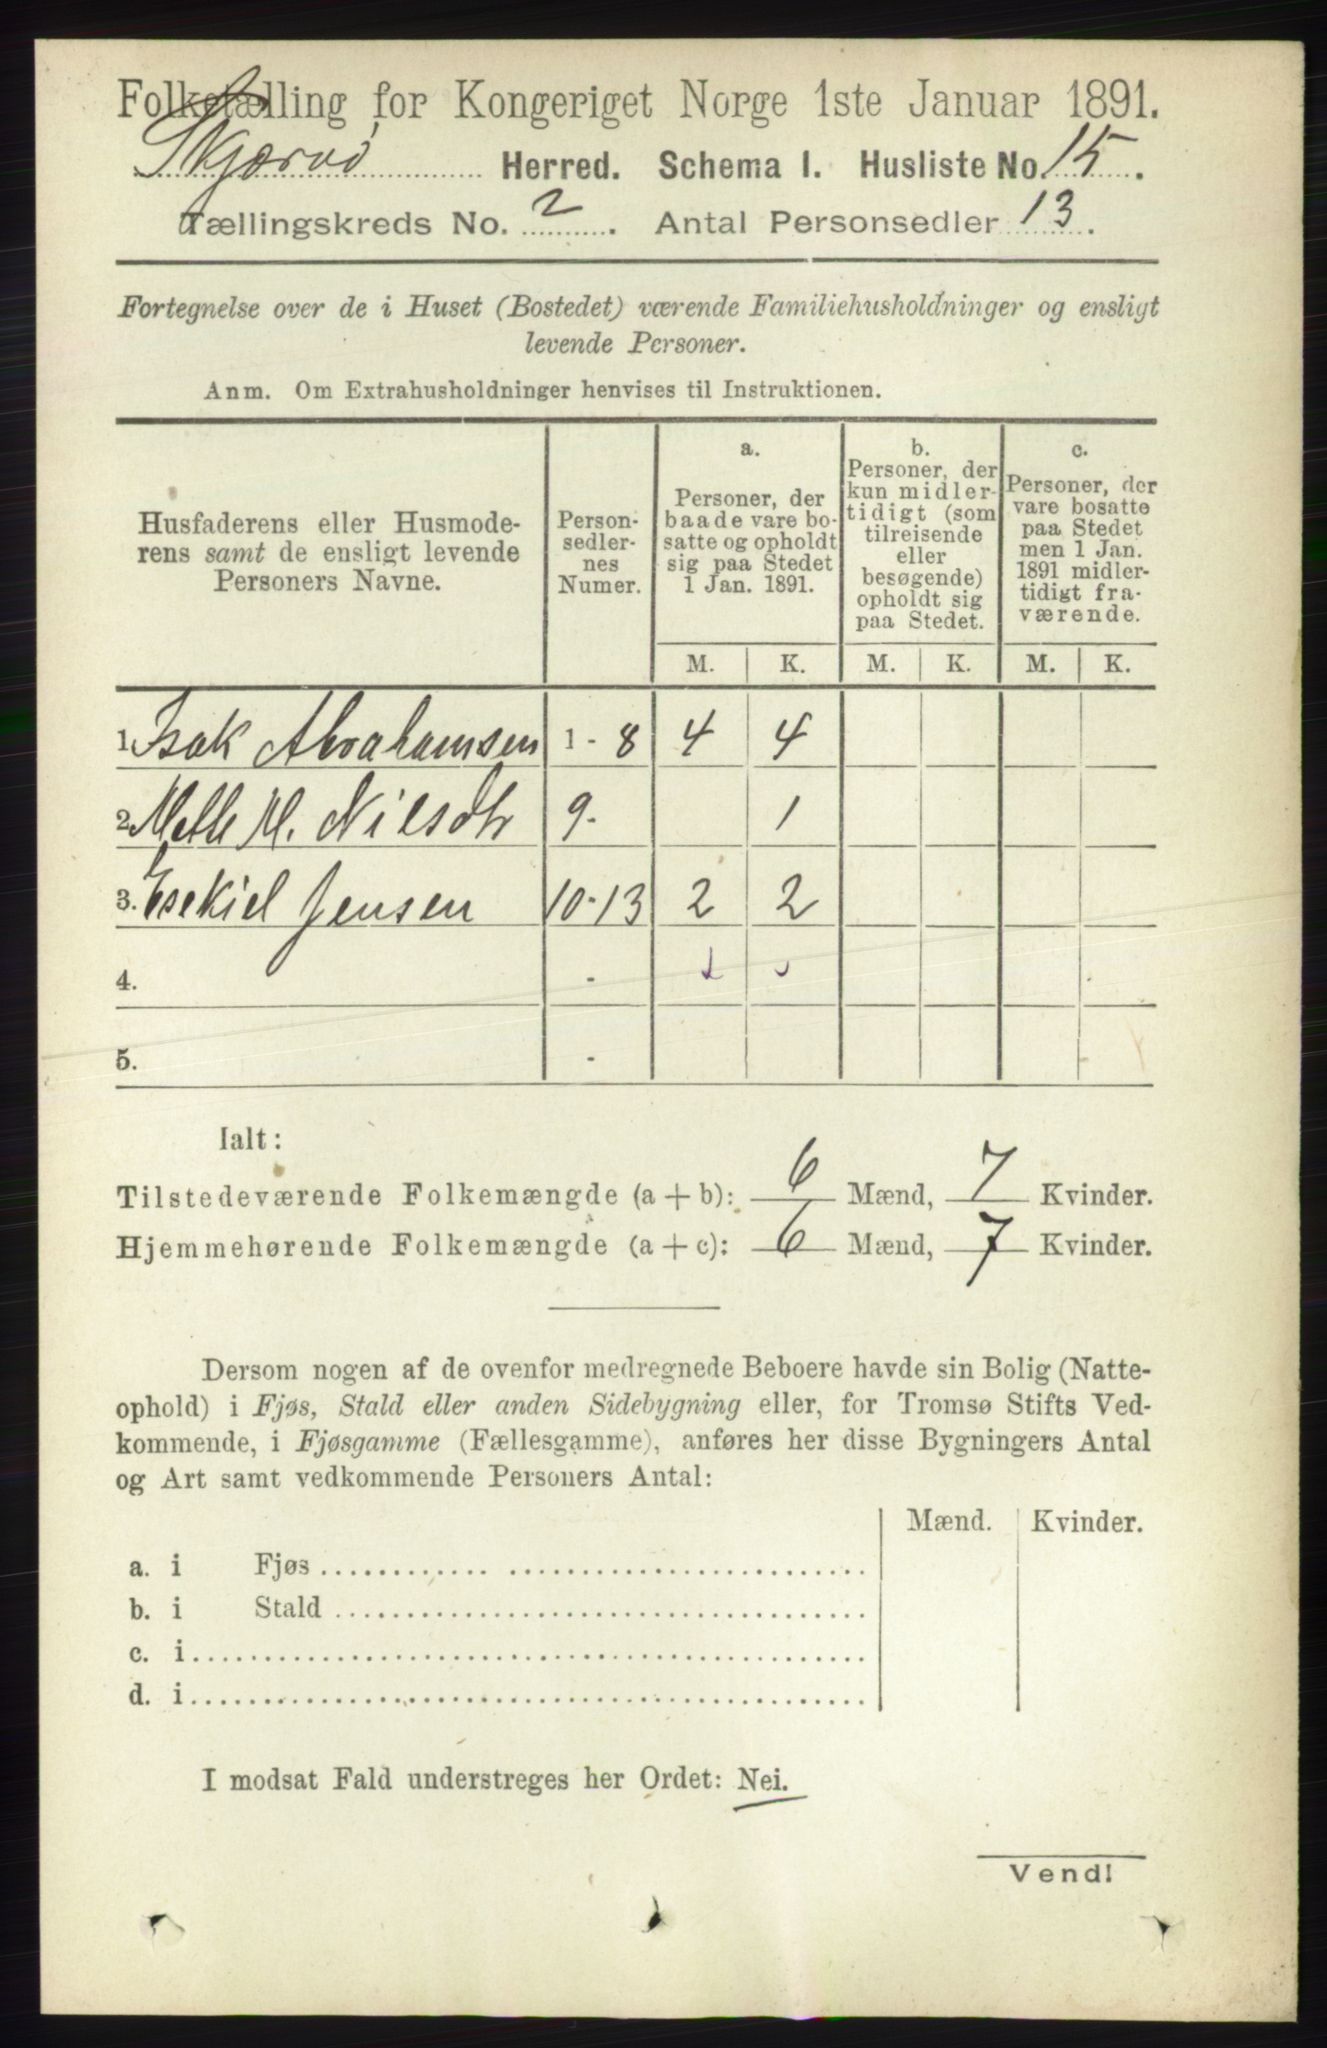 Folketælling for Kongeriget Norge 1ste Januar 1891.
Skjærvø Herred. Schema I. Husliste No. 15.
Tællingskreds No. 2. Antal Personsedler 13.
Fortegnelse over de i Huset (Bostedet) værende Familiehusholdninger og ensligt
levende Personer.
Anm. Om Extrahusholdninger henvises til Instruktionen.
Husfaderens eller Husmode-
rens samt de ensligt levende
Personers Navne.
Person-
sedler-
nes
Numer.
a.
Personer, der
baade vare bo-
satte og opholdt
sig paa Stedet
1 Jan. 1891.
b.
Personer, der
kun midler-
tidigt (som
tilreisende
eller
besøgende)
opholdt sig
paa Stedet.
c.
Personer, der
vare bosatte
paa Stedet
men 1 Jan.
1891 midler-
tidigt fra-
værende.
M. K. M. K. M. K.
1. Isak Abrahamsen 1 - 8 4 4
2. Meth M. Nilsdtr 9 - 1
3. Esekiel Jensen 10 - 13 2 2
4. -
5. -
Ialt:
Tilstedeværende Folkemængde (a + b): 6 Mænd, 7 Kvinder.
Hjemmehørende Folkemængde (a + c): 6 Mænd, 7 Kvinder.
Dersom nogen af de ovenfor medregnede Beboere havde sin Bolig (Natte-
ophold) i Fjøs, Stald eller anden Sidebygning eller, for Tromsø Stifts Ved-
kommende, i Fjøsgamme (Fællesgamme), anføres her disse Bygningers Antal
og Art samt vedkommende Personers Antal:
Mænd. Kvinder.
a. i Fjøs
b. i Stald
c. i
d. i
I modsat Fald understreges her Ordet: Nei.
Vend!